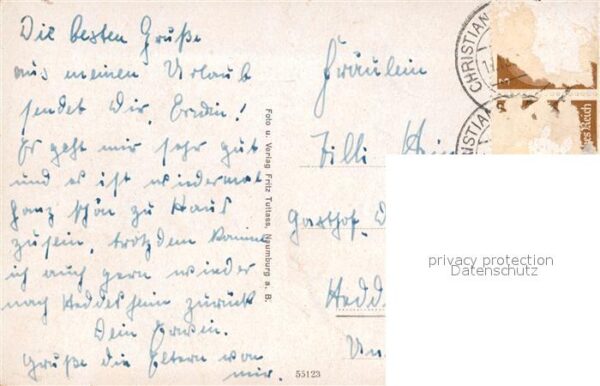 Die besten Grüße
aus meinen Urlaub
sendet Dir, Erwin!
Es geht mir sehr gut
und es ist wiedermal
ganz schön zu Haus
zu sein, trotzdem komme
ich auch gern wieder
nach Heddesheim zurück
Dein Erwin.
Grüße die Eltern von
mir.
Foto u. Verlag Fritz Tuttass, Naumburg a. B.
55123
Fräulein
Zilli
Gasthof
Hedd
Un
CHRISTIAN
STIAN
3
es Reich
privacy protection
Datenschutz